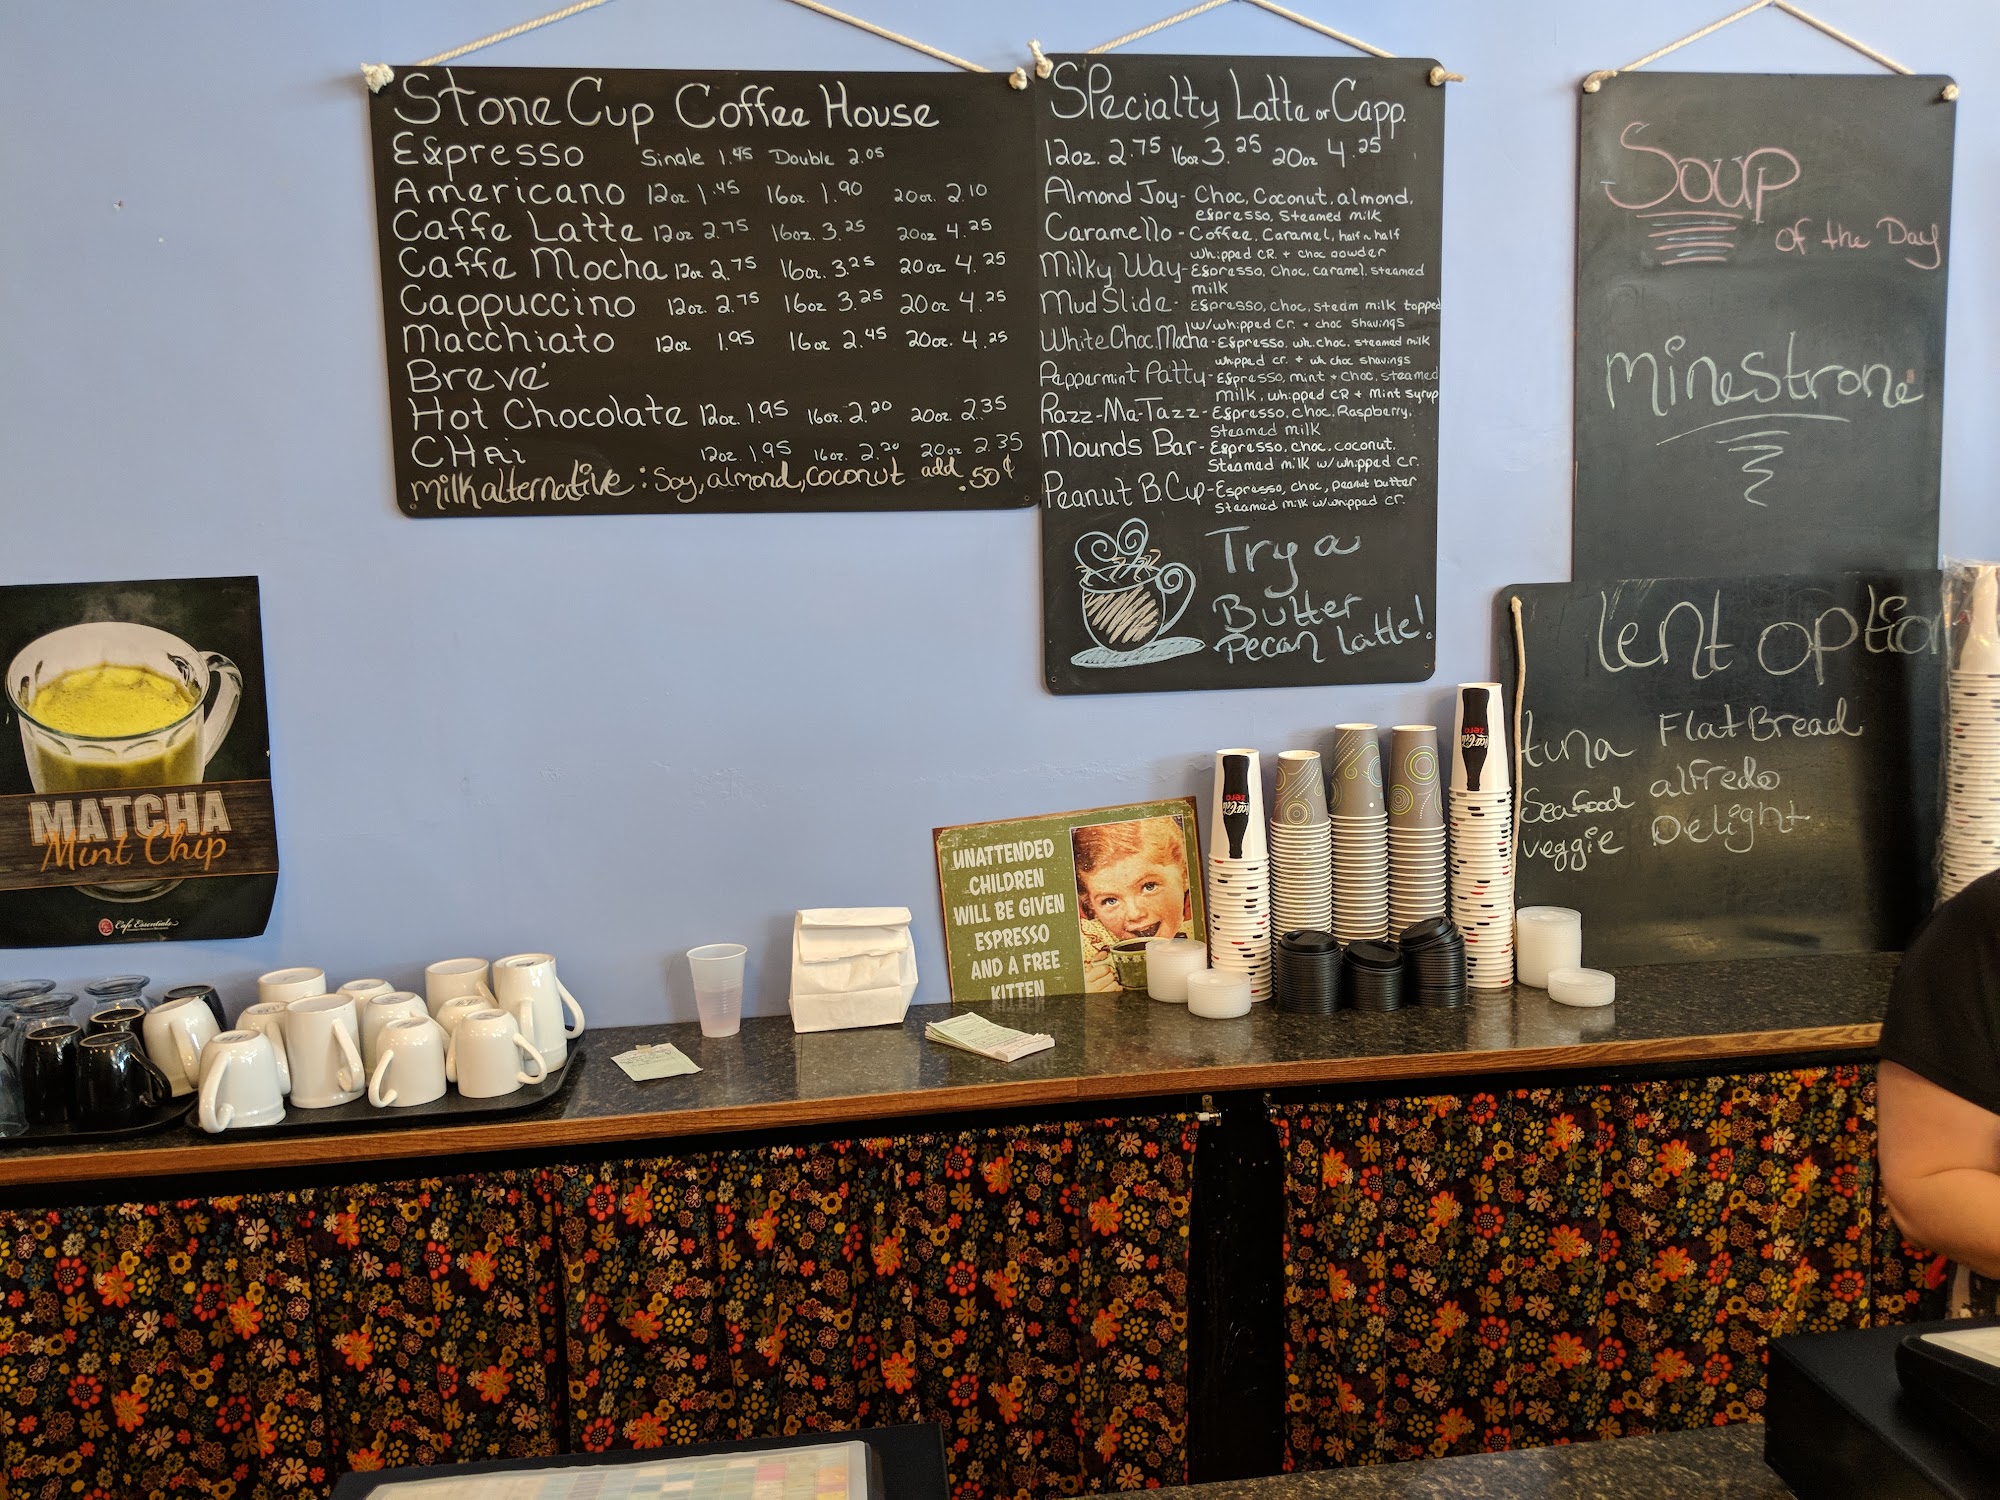 Stone Cup Coffee House
Espresso Single 1.45 Double 2.05
Americano 12oz. 1.45 16oz. 1.90 20oz. 2.10
Caffe Latte 12oz 2.75 16oz. 3.25 20oz 4.25
Caffe Mocha 12oz. 2.75 16oz. 3.25 20oz 4.25
Cappuccino 12oz. 2.75 16oz 3.25 20oz 4.25
Macchiato 12oz 1.95 16oz 2.45 20oz. 4.25
Brevé
Hot Chocolate 12oz. 1.95 16oz. 2.20 20oz. 2.35
CHai 12oz. 1.95 16oz. 2.20 20oz 2.35
milk alternative: Soy, almond, coconut add .50¢
Specialty Latte or Capp.
12oz. 2.75 16oz 3.25 20oz 4.25
Almond Joy- Choc, Coconut, almond,
espresso, Steamed milk
Caramello - Coffee, Caramel, half n half
whipped CR. + choc powder
Milky Way- Espresso, Choc, caramel, steamed
milk
MudSlide - Espresso, choc, steam milk topped
w/whipped cr. + choc shavings
White Choc. Mocha - Espresso, wh. choc. steamed milk
whipped cr. + wh choc shavings
Peppermint Patty - Espresso, mint + choc, steamed
milk, whipped CR + mint syrup
Razz-Ma-Tazz - Espresso, choc, Raspberry,
Steamed milk
Mounds Bar - Espresso, choc, coconut.
Steamed milk w/whipped cr.
Peanut B. Cup - Espresso, choc, peanut butter
Steamed milk w/whipped cr.
Try a
Butter
Pecan Latte!
Soup
of the Day
minestrone
Lent option
tuna FlatBread
Seafood alfredo
veggie Delight
MATCHA
Mint Chip
Cafe Essentials
UNATTENDED
CHILDREN
WILL BE GIVEN
ESPRESSO
AND A FREE
KITTEN
Coca-Cola
zero
Coca-Cola
zero